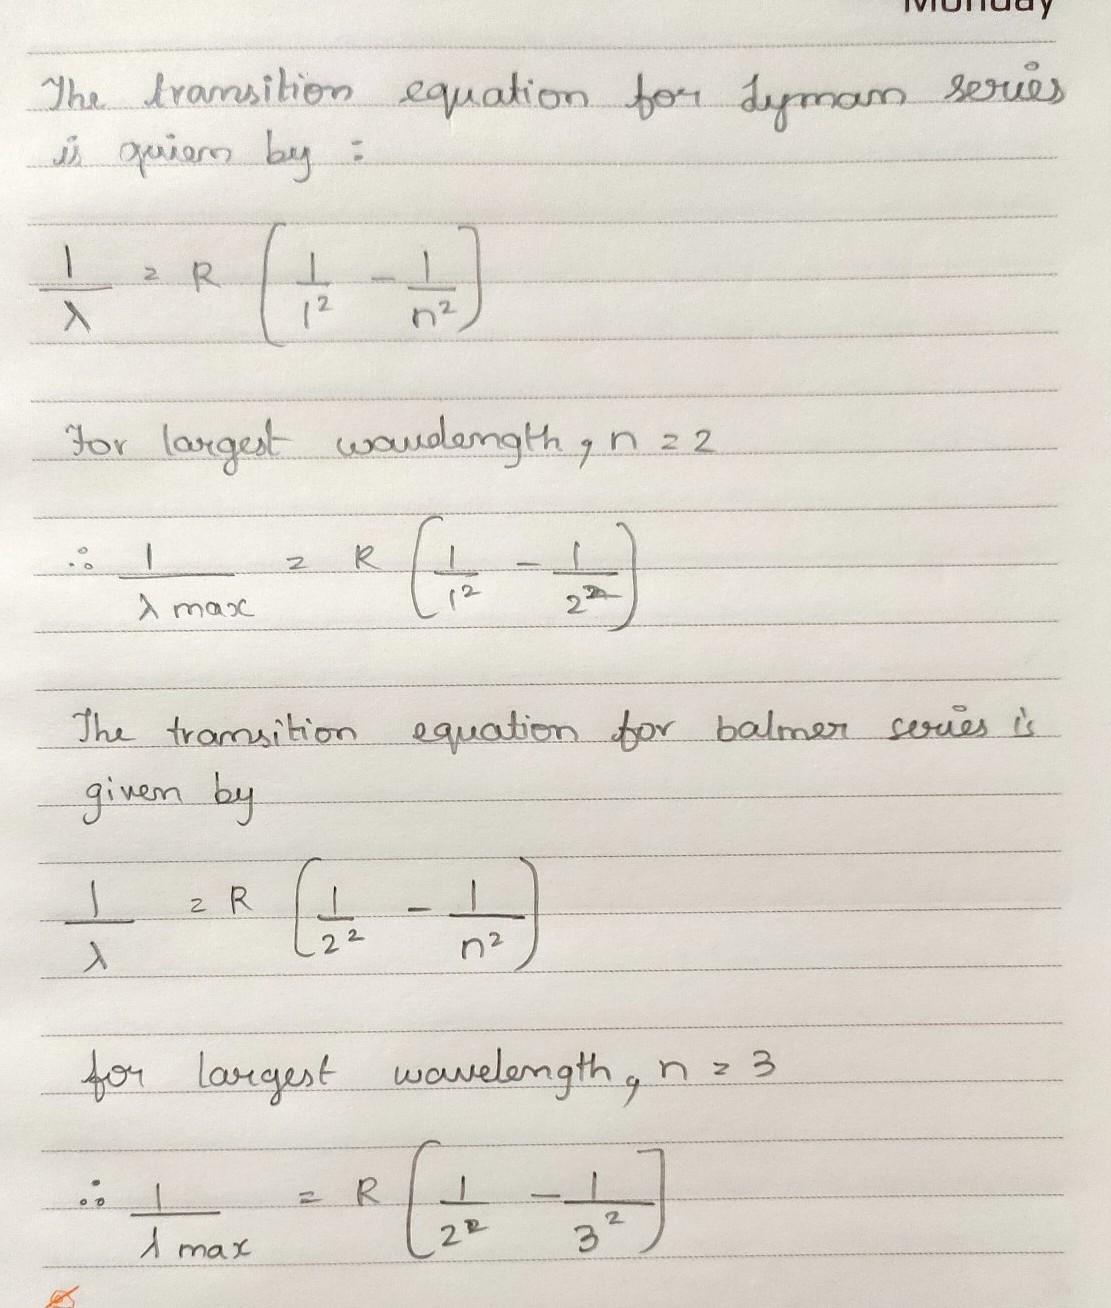 Monday
The transition equation for Lyman series
is given by :
1/λ = R [1/1² - 1/n²]
For largest wavelength, n = 2
∴ 1/λ max = R [1/1² - 1/2²]
The transition equation for balmer series is
given by
1/λ = R [1/2² - 1/n²]
for largest wavelength, n = 3
∴ 1/λ max = R [1/2² - 1/3²]